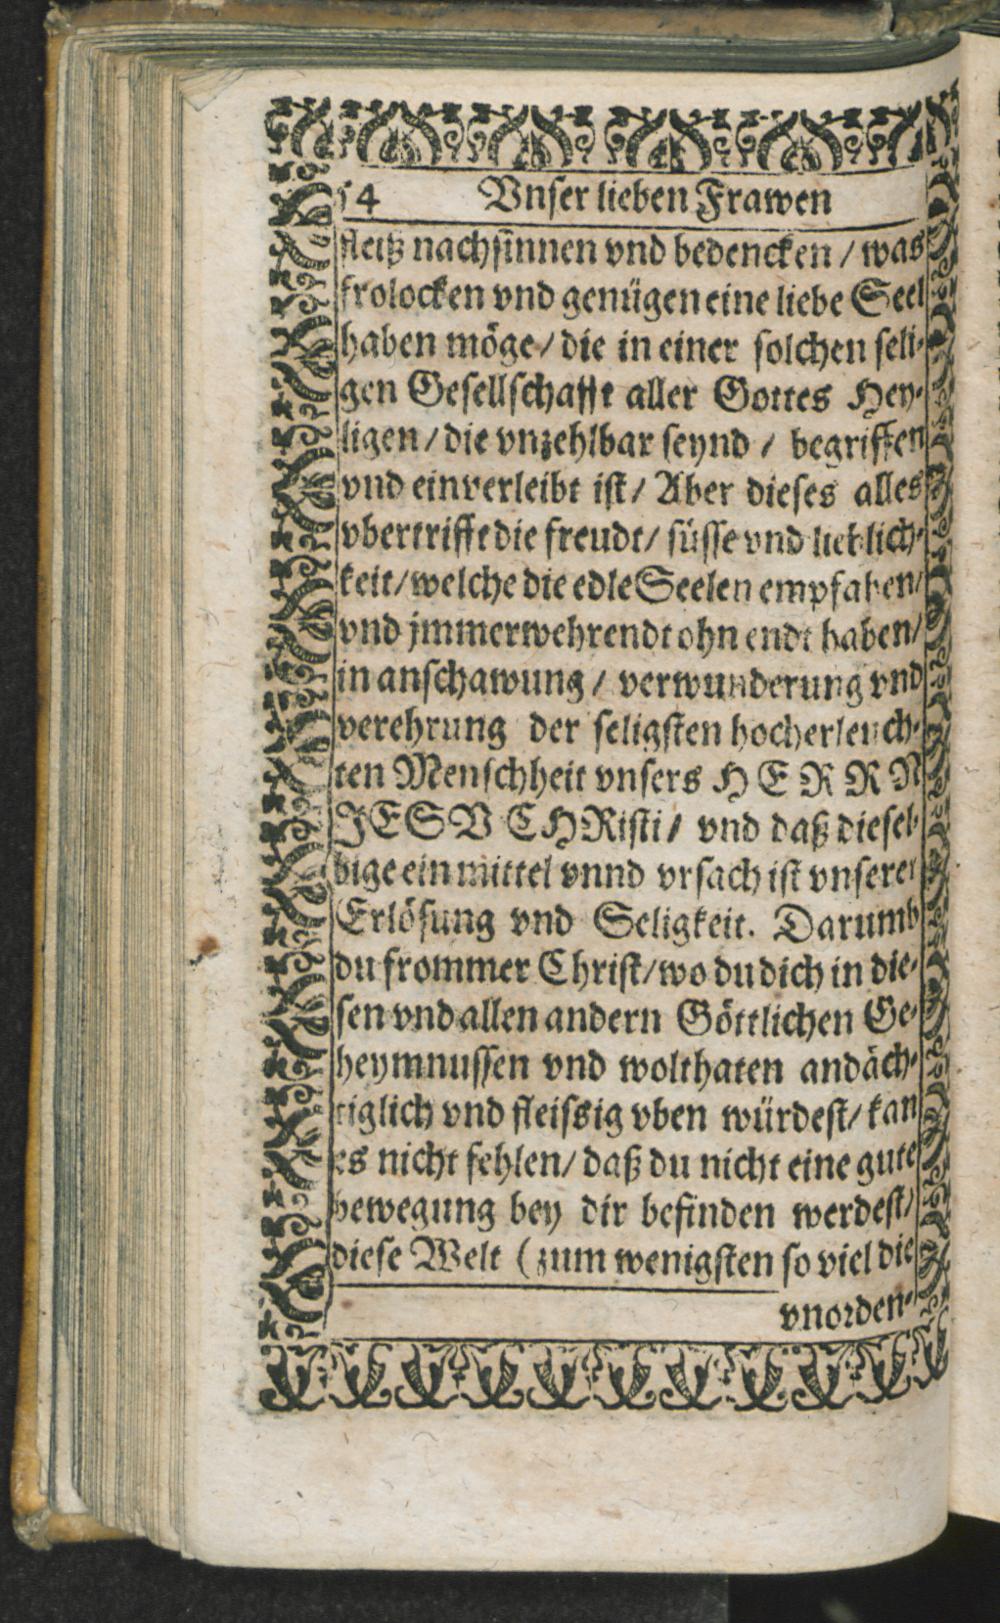 54 Vnser lieben Frawen
fleiß nachsinnen vnd bedencken / was
frolocken vnd genügen eine liebe Seel
haben möge / die in einer solchen seli-
gen Gesellschafft aller Gottes Hey-
ligen / die vnzehlbar seynd / begriffen
vnd einverleibt ist / Aber dieses alles
vbertrifft die freudt / süsse vnd lieblich-
keit / welche die edle Seelen empfahen /
vnd jmmerwehrendt ohn endt haben /
in anschawung / verwunderung vnd
verehrung der seligsten hocherleuch-
ten Menschheit vnsers HERRN
JESV CHRisti / vnd daß diesel-
bige ein mittel vnnd vrsach ist vnserer
Erlösung vnd Seligkeit. Darumb
du frommer Christ / wo du dich in die-
sen vnd allen andern Göttlichen Ge-
heymnussen vnd wolthaten andäch-
tiglich vnd fleissig vben würdest / kan
es nicht fehlen / daß du nicht eine gute
bewegung bey dir befinden werdest /
diese Welt (zum wenigsten so viel die
vnorden-